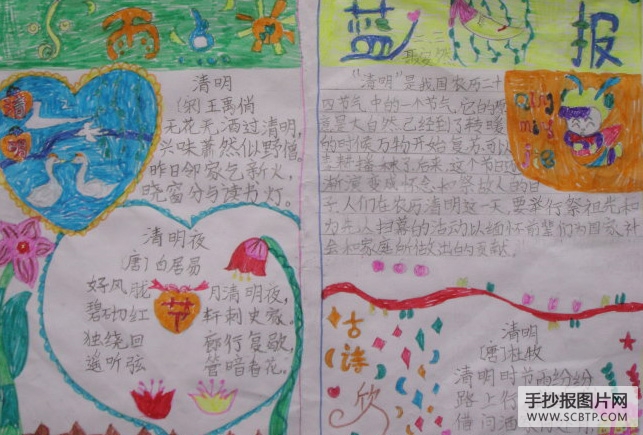 雨
蓝
报
三.三
清明
(宋)王禹偁
无花无酒过清明,
兴味萧然似野僧。
昨日邻家气新火,
晓窗分与读书灯。
清明
清明夜
(唐)白居易
好风胧月清明夜,
碧砌红轩刺史家。
独绕回廊行复歇,
遥听弦管暗看花。
节
"清明"是我国农历二十
四节气中的一个节气,它的所
意是大自然已经到了转暖
的时候万物开始复苏,可以
播种了后来,这个节日逐
渐演变成怀念和祭故人的日
子,人们在农历清明这一天,要举行祭祖先和
为先人扫幕的活动以缅怀前辈们为国家、社
会和家庭所做出的贡献。
Qing
ming
jie
古诗欣
清明
[唐]杜牧
清明时节雨纷纷
路上行
借问酒
手抄报图片网
WWW.SCBTP.COM